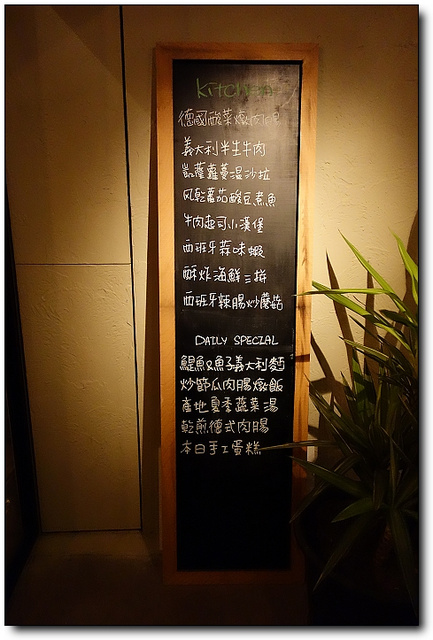 KITCHEN
德國酸菜燉肉
義大利半生牛肉
凱薩蘿蔓溫沙拉
風乾蕃茄酸豆煮魚
牛肉起司小漢堡
西班牙蒜味蝦
酥炸海鮮三拼
西班牙辣腸炒蘑菇
DAILY SPECIAL
鯷魚&魚子義大利麵
炒節瓜肉腸燉飯
產地夏季蔬菜湯
乾煎德式肉腸
本日手工蛋糕